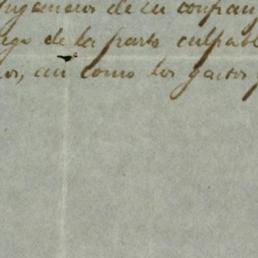 Ingenieros de su confian
rgo de la parte culpabl
os, asi como los gastos